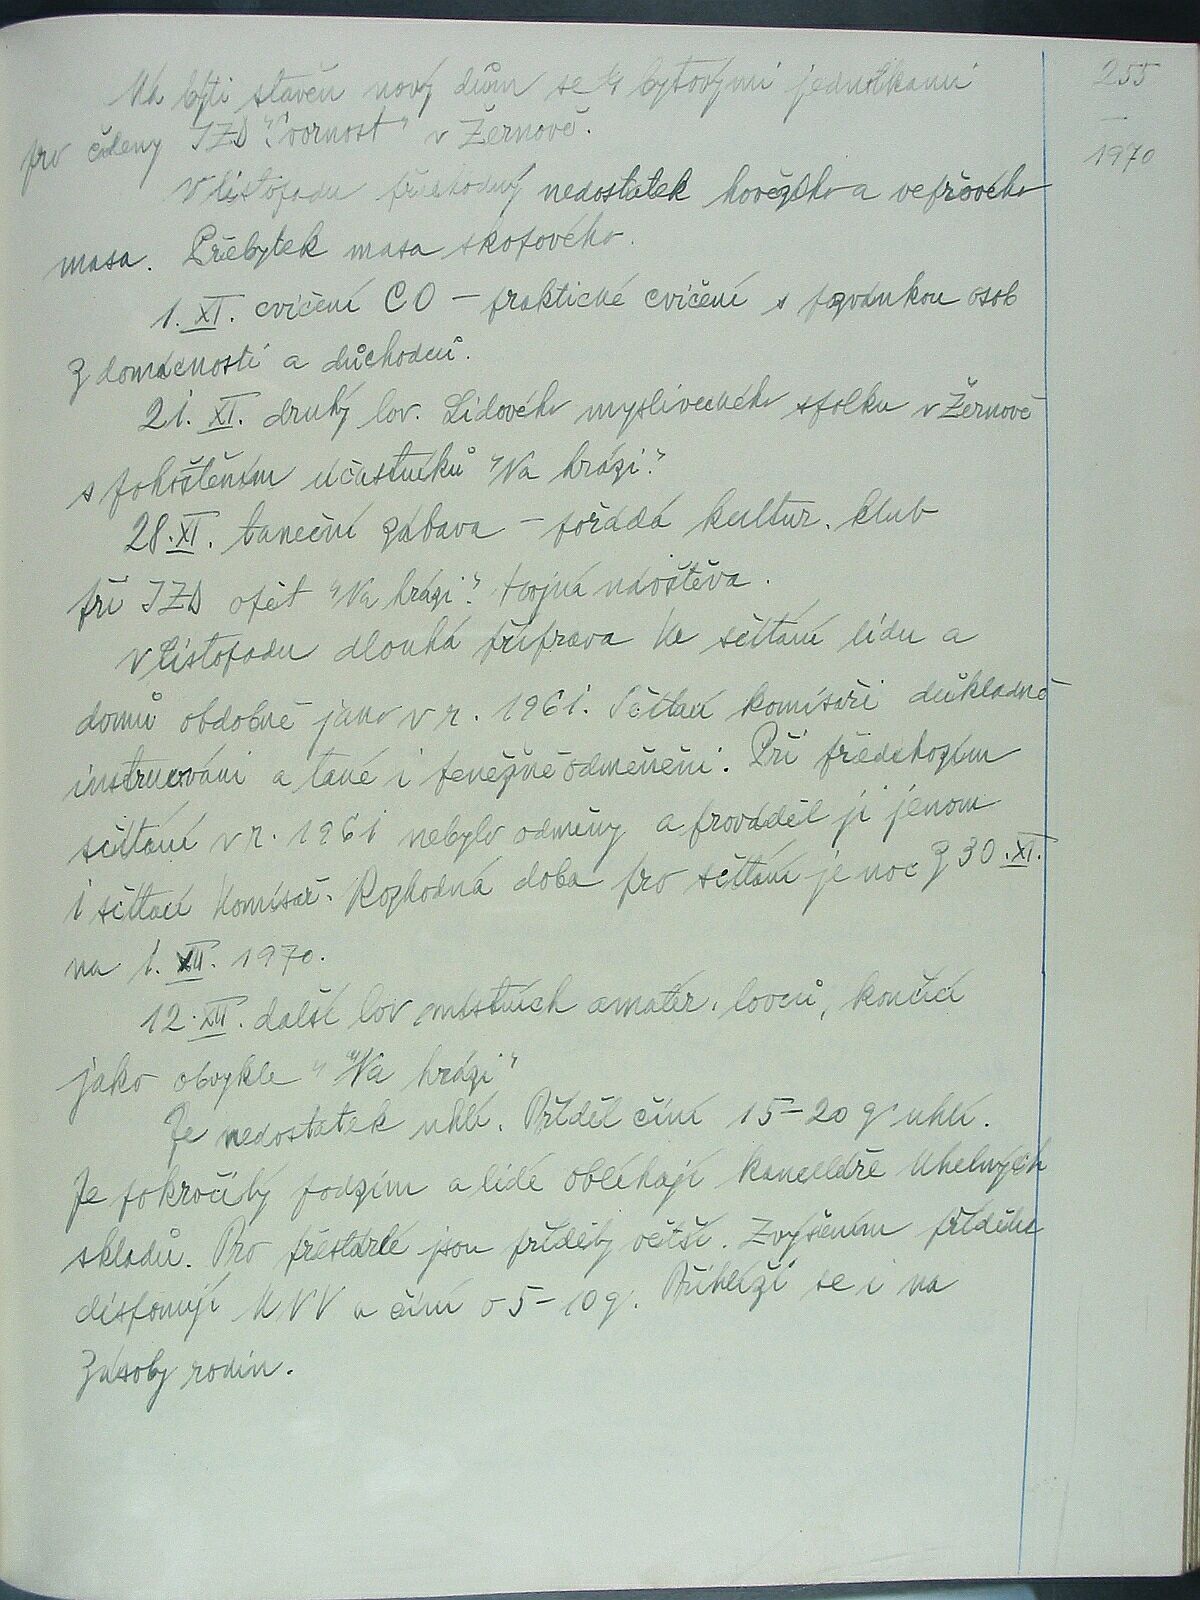 255
1970
Má býti stavěn nový dům se 4 bytovými jednotkami
pro členy JZD "Svornost" v Žernově.
V listopadu přechodný nedostatek hovězího a vepřového
masa. Přebytek masa skopového.
1. XI. cvičení CO – praktické cvičení s pozvánkou osob
z domácnosti a důchodců.
21. XI. druhý lov. Lidového mysliveckého spolku v Žernově
s pohoštěním účastníků "Na hrázi."
28. XI. taneční zábava – pořádá kultur. klub
při JZD opět "Na hrázi." hojná návštěva.
V listopadu dlouhá příprava ke sčítání lidu a
domů obdobně jako v r. 1961. Sčítací komisaři důkladně
instruováni a také i peněžně odměněni. Při předchozím
sčítání v r. 1961 nebylo odměny a prováděl ji jenom
1 sčítací komisař. Rozhodná doba pro sčítání je noc z 30. XI.
na 1. XII. 1970.
12. XII. další lov místních amatér. lovců, končící
jako obvykle "Na hrázi"
Je nedostatek uhlí. Příděl činí 15–20 q uhlí.
Je pokročilý podzim a lidé obléhají kanceláře Uhelných
skladů. Pro přestárlé jsou příděly větší. Zvýšením přídělu
disponují MNV a činí o 5–10 q. Přihlíží se i na
zásoby rodin.